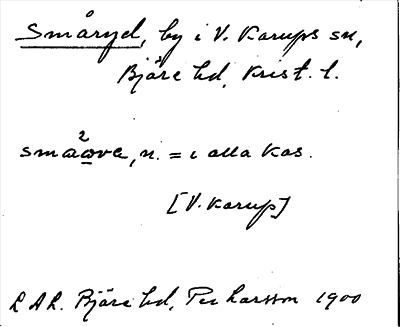 Småryd, by i V. Karups sn,
Bjäre hd, Krist. l.
n. = i alla kas.
[V. Karup]
L A L. Bjäre hd, Per Larsson 1900